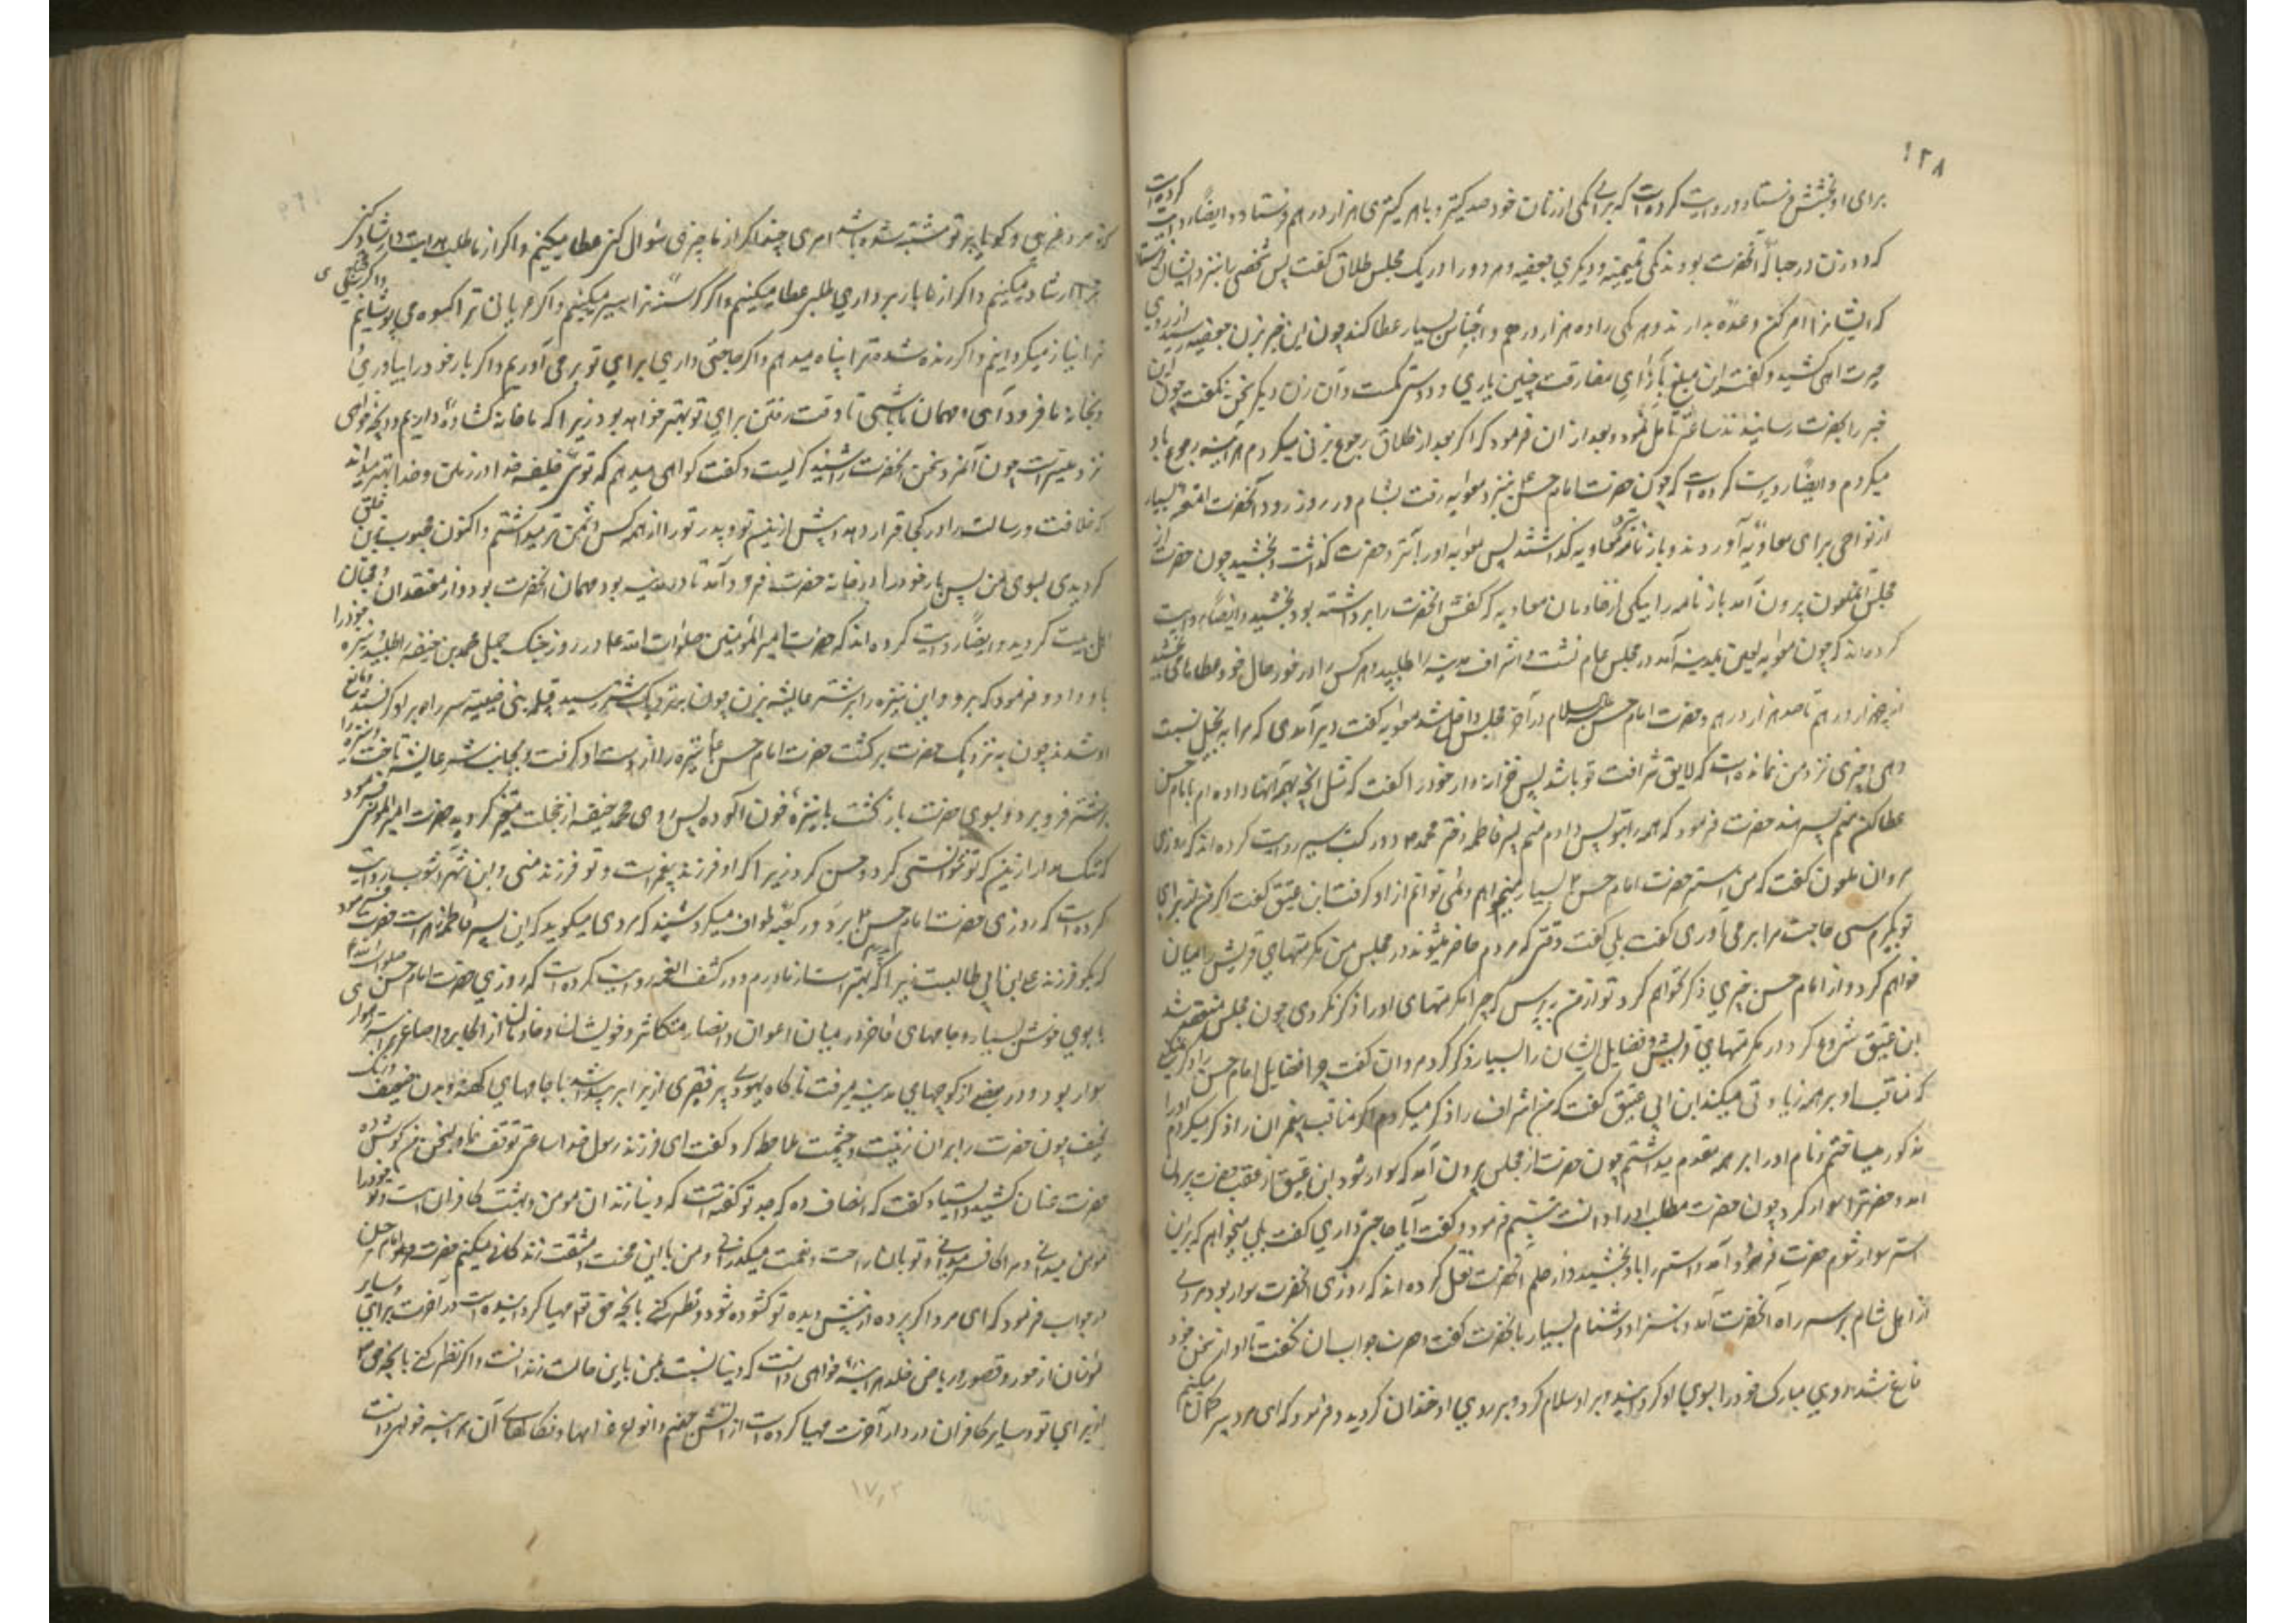 ١٢٨
برای او بخشش فرستاد و روایت کرده است که برای یکی از زنان خود صد کنیز و با هر کنیزی هزار درهم فرستاد و ایضا روایت کرده است
که دو زن در حباله آنحضرت بودند یکی تمیمیه و دیگری جعفیه و هر دو را در یک مجلس طلاق گفت پس شخصی را بنزد ایشان فرستاد
که ایشانرا امر کن وعده بدارند و هر یکی را ده هزار درهم و اجناس بسیار عطا کند چون این خبر بزن جعفیه رسید از روی
حسرت آهی کشید و گفت این مبلغ بازای مفارقت چنین یاری و دوستی کمست و آن زن دیگر سخن نگفت چون این
خبر را بحضرت رسانیدند ساعتی تامل نمود و بعد از آن فرمود که اگر بعد از طلاق رجوع بزنی میکردم هر آینه رجوع باو
میکردم و ایضا روایت کرده است که چون حضرت امام حسن بنزد معویه رفت بشام در روز ورود آنحضرت امتعه بسیار
از نواحی برای معاویه آوردند و بارنامه نزد معاویه گذاشتند پس معویه او را بنزد حضرت گذاشت و بخشید چون حضرت از
مجلس آنملعون بیرون آمد بارنامه را بیکی از خادمان معاویه که کفش آنحضرت را برداشته بود بخشید و ایضا روایت
کرده اند که چون معویه لعین بمدینه آمد در مجلس عام نشست و اشراف مدینه را طلبید و هر کس را در خور حال خود عطا مامی بخشید
از پنجهزار درهم تا صد هزار درهم و حضرت امام حسن علیه السلام در آخر مجلس داخل شد معویه گفت دیر آمدی که مرا به بخیل نسبت
دهی و چیزی نزد من نمانده است که لایق شرافت تو باشد پس خزانه دار خود را گفت که مثل آنچه بهمه آنها داده ام بامام حسن
عطا کن منم پسر هند حضرت فرمود که همه را بتو پس دادم منم پسر فاطمه دختر محمد و در کتب سیر روایت کرده اند که روزی
مروان ملعون گفت که من استر حضرت امام حسن بسیار میخواهم و نمی توانم از او گرفت ابن عتیق گفت اگر من از برای
تو بگیرم سی حاجت مرا بر می آوری گفت بلی گفت وقتی که مردم حاضر میشوند در مجلس من مکرمتهای قریش را بیان
خواهم کرد و از امام حسن چیزی ذکر نخواهم کرد تو از من بپرس که چرا مکرمتهای او را ذکر نکردی چون مجلس منعقد شد
ابن عتیق شروع کرد در مکرمتهای قریش و فضایل ایشان را بسیار ذکر کرد مروان گفت چرا فضایل امام حسن را ذکر نمیکنی
که مناقب او بر همه زیادتی میکند ابن ابی عتیق گفت که من اشراف را ذکر میکردم اگر مناقب پیغمبران را ذکر میکردم او را
مذکور میساختم و نام او را بر همه مقدم میداشتم چون حضرت از مجلس بیرون آمد که سوار شود ابن عتیق از عقب حضرت بیرون
آمد و حضرترا سوار کرد چون حضرت مطلب او را دانست تبسم فرمود و گفت آیا حاجتی داری گفت بلی میخواهم که بر این
استر سوار شوم حضرت فرود آمد و استر را باو بخشید و از حلم آنحضرت نقل کرده اند که روزی آنحضرت سوار بود مردی
از اهل شام بر سر راه آنحضرت آمد و ناسزا و دشنام بسیار بآنحضرت گفت و حضرت جواب او نگفت تا او از سخن خود
فارغ شد روی مبارک خود را بسوی او گردانید و بر او سلام کرد و بر روی او خندان گردید و فرمود که ای مرد پیر گمان میکنم
که تو مرد غریبی و گویا بر تو مشتبه شده باشد امری چند اگر از ما چیزی سئوال کنی عطا میکنیم و اگر از ما طلب هدایت و ارشاد کنی
ترا ارشاد میکنیم و اگر از ما باربرداری طلبی عطا میکنیم و اگر گرسنه ترا سیر میکنیم و اگر عریانی ترا کسوه می پوشانیم و اگر محتاجی
ترا بی نیاز میگردانیم و اگر رانده شده ترا پناه میدهم و اگر حاجتی داری برای تو بر می آوریم و اگر بار خود را بیاوری
و بخانه ما فرود آئی و مهمان ما باشی تا وقت رفتن برای تو بهتر خواهد بود زیرا که ما خانه گشاده داریم و آنچه خواهی
نزد ما میسر است چون آنمرد سخن آنحضرت را شنید گریست و گفت گواهی میدهم که توئی خلیفه خدا در زمین و خدا بهتر میداند
که خلافت و رسالت را در کجا قرار دهد و پیش از این تو و پدر تو را از همه کس دشمن تر میداشتم و اکنون محبوب ترین خلق
گردیدی بسوی من پس بار خود را در خانه حضرت فرود آمد تا در مدینه بود مهمان آنحضرت بود و از معتقدان و محبان
اهل بیت گردید و ایضا روایت کرده اند که حضرت امیر المؤمنین صلوات الله علیه در روز جنگ جمل محمد بن حنفیه را طلبید و نیزه خود را
باو داد و فرمود که برو و این نیزه را بر شتر عایشه بزن چون بنزدیک شتر رسید قبیله بنی ضبه سر راه بر او گرفتند و مانع
او شدند چون به نزدیک حضرت برگشت حضرت امام حسن نیزه را از دست او گرفت و بجانب شتر عایشه تاخت و نیزه را
بر شتر فرو برد و بسوی حضرت بازگشت با نیزه خون آلوده پس روی محمد حنفیه از خجلت متغیر گردید حضرت امیر المؤمنین فرمود
که ننگ مدار از این که تو نتوانستی کرد و حسن کرد زیرا که او فرزند پیغمبر است و تو فرزند منی و ابن شهر آشوب روایت
کرده است که روزی حضرت امام حسن بر دور کعبه طواف میکرد شنید که مردی میگوید که این پسر فاطمه زهرا است حضرت فرمود
که بگو فرزند علی ابن ابی طالبست زیرا که پدرم بهتر است از مادرم و در کشف الغمه روایت کرده است که روزی حضرت امام حسن صلوات الله علیه
با بوی خوش بسیار و جامهای فاخر در میان اعوان و انصار متکاثر و خویشان و خادمان از اکابر و اصاغر بر استر سواری
سوار بود و در بعضی از کوچهای مدینه میرفت ناگاه یهودی پیر فقیری از برابر پیدا شد با جامهای کهنه و بدن ضعیف و رنگ
نحیف چون حضرت را بر آن زینت و حشمت ملاحظه کرد گفت ای فرزند رسول خدا ساعتی توقف نما و سخن من گوش ده
حضرت عنان کشید و ایستاد گفت که انصاف ده که جد تو گفته است که دنیا زندان مومن و بهشت کافران است و تو خود را
مومن میدانی و مرا کافر میدانی و تو با آن راحت و نعمت میگذرانی و من با این محنت و مشقت زندگانی میکنم حضرت امام حسن
در جواب فرمود که ای مرد اگر پرده از پیش دیده تو گشوده شود و نظر کنی بآنچه حق تعالی مهیا گردانیده است در آخرت برای من و سایر
مؤمنان از حور و قصور و ریاض خلد هر آینه خواهی دانست که دنیا نسبت بمن باین حالت زندانست و اگر نظر کنی بآنچه حق تعالی
از برای تو و سایر کافران در دار آخرت مهیا کرده است از آتش جهنم و انواع عذابها و نکالهای آن هر آینه خواهی دانست